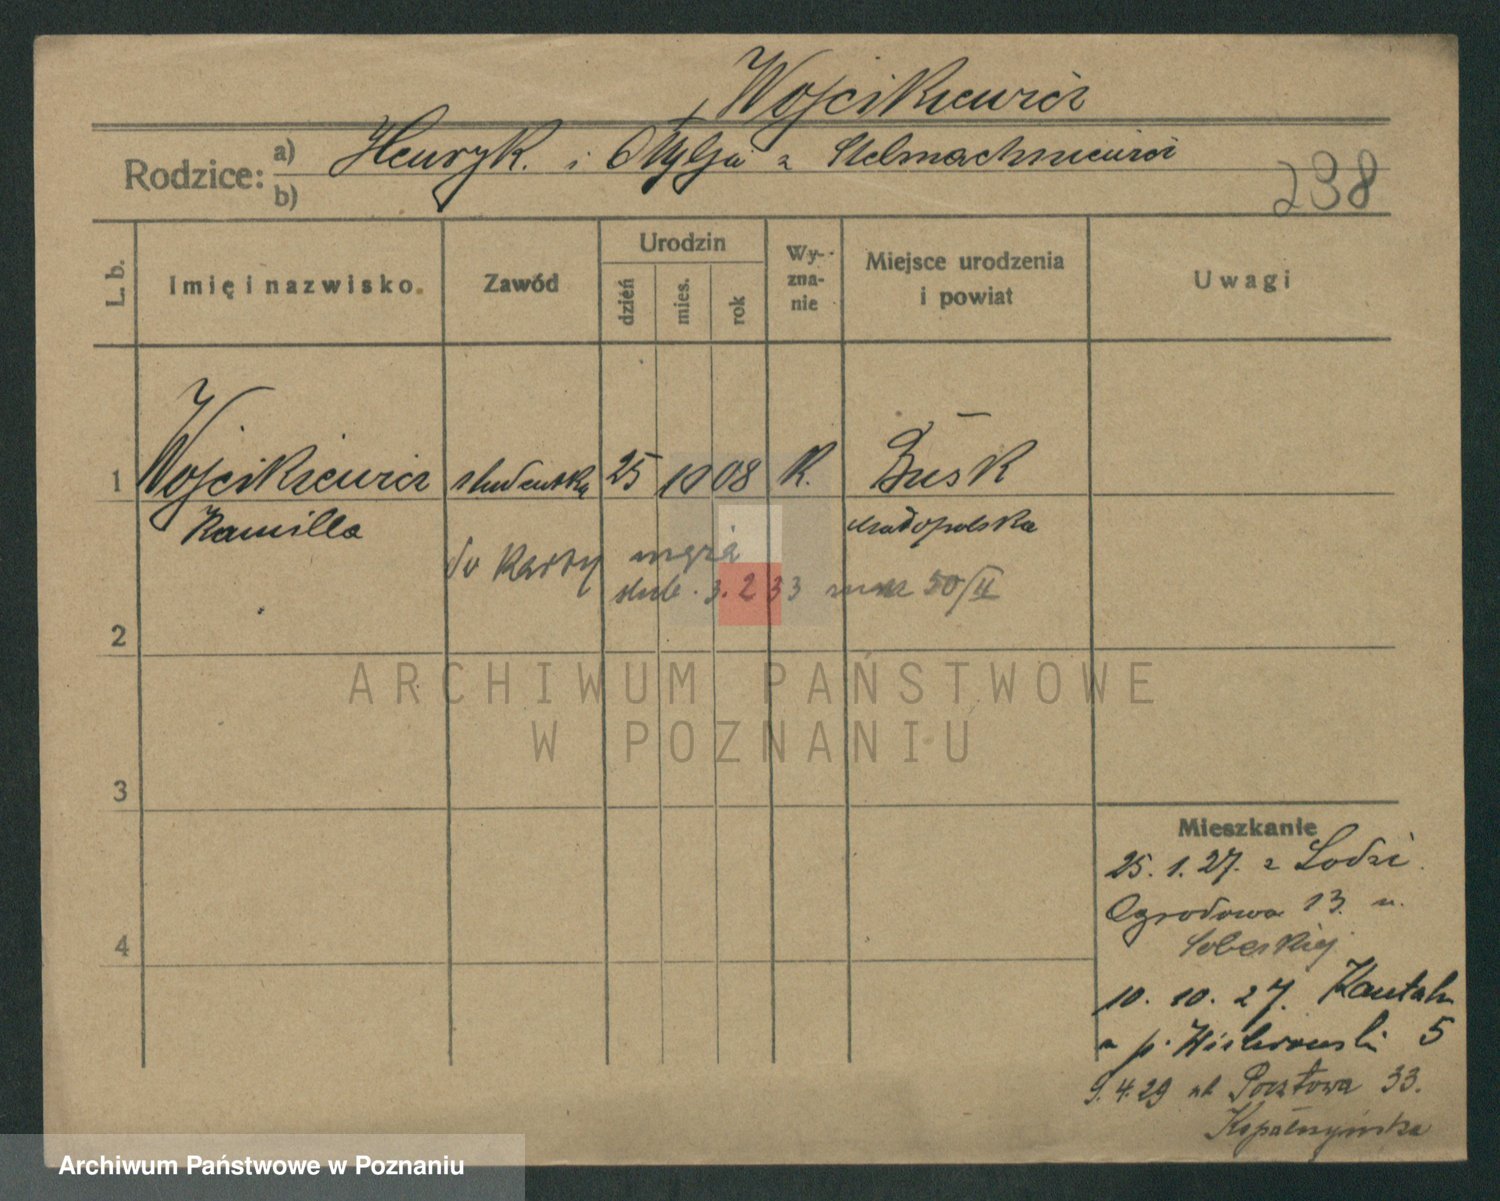 Wojcikiewicz
Rodzice: a) Henryk. i Otylja z Stelmachniewicz
b)
238
L. b.
Imię i nazwisko.
Zawód
Urodzin
dzień
mies.
rok
Wy-
zna-
nie
Miejsce urodzenia
i powiat
Uwagi
1 Wojcikiewicz studentka 25 10 08 R. Busk
Kamilla małopolska
do karty męża
ślub. 3. 2 33 50/II
2
3
4
Mieszkanie
25. 1. 27. z Lodzi
Ogrodowa 13. u.
Soberskiej
10. 10. 27. Kantaka
u p. 5
9. 4. 29 Pocztowa 33.
ARCHIWUM PAŃSTWOWE
W POZNANIU
Archiwum Państwowe w Poznaniu